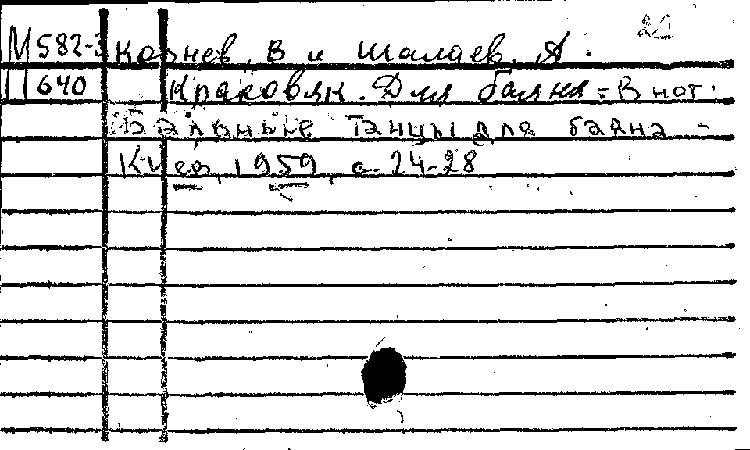 21
М 582-3 Корнев, В и Шалаев, А.
П 640 Краковяк. Для баяна = В нот.
Бальные танцы для баяна -
Киев, 1959, с. 24-28